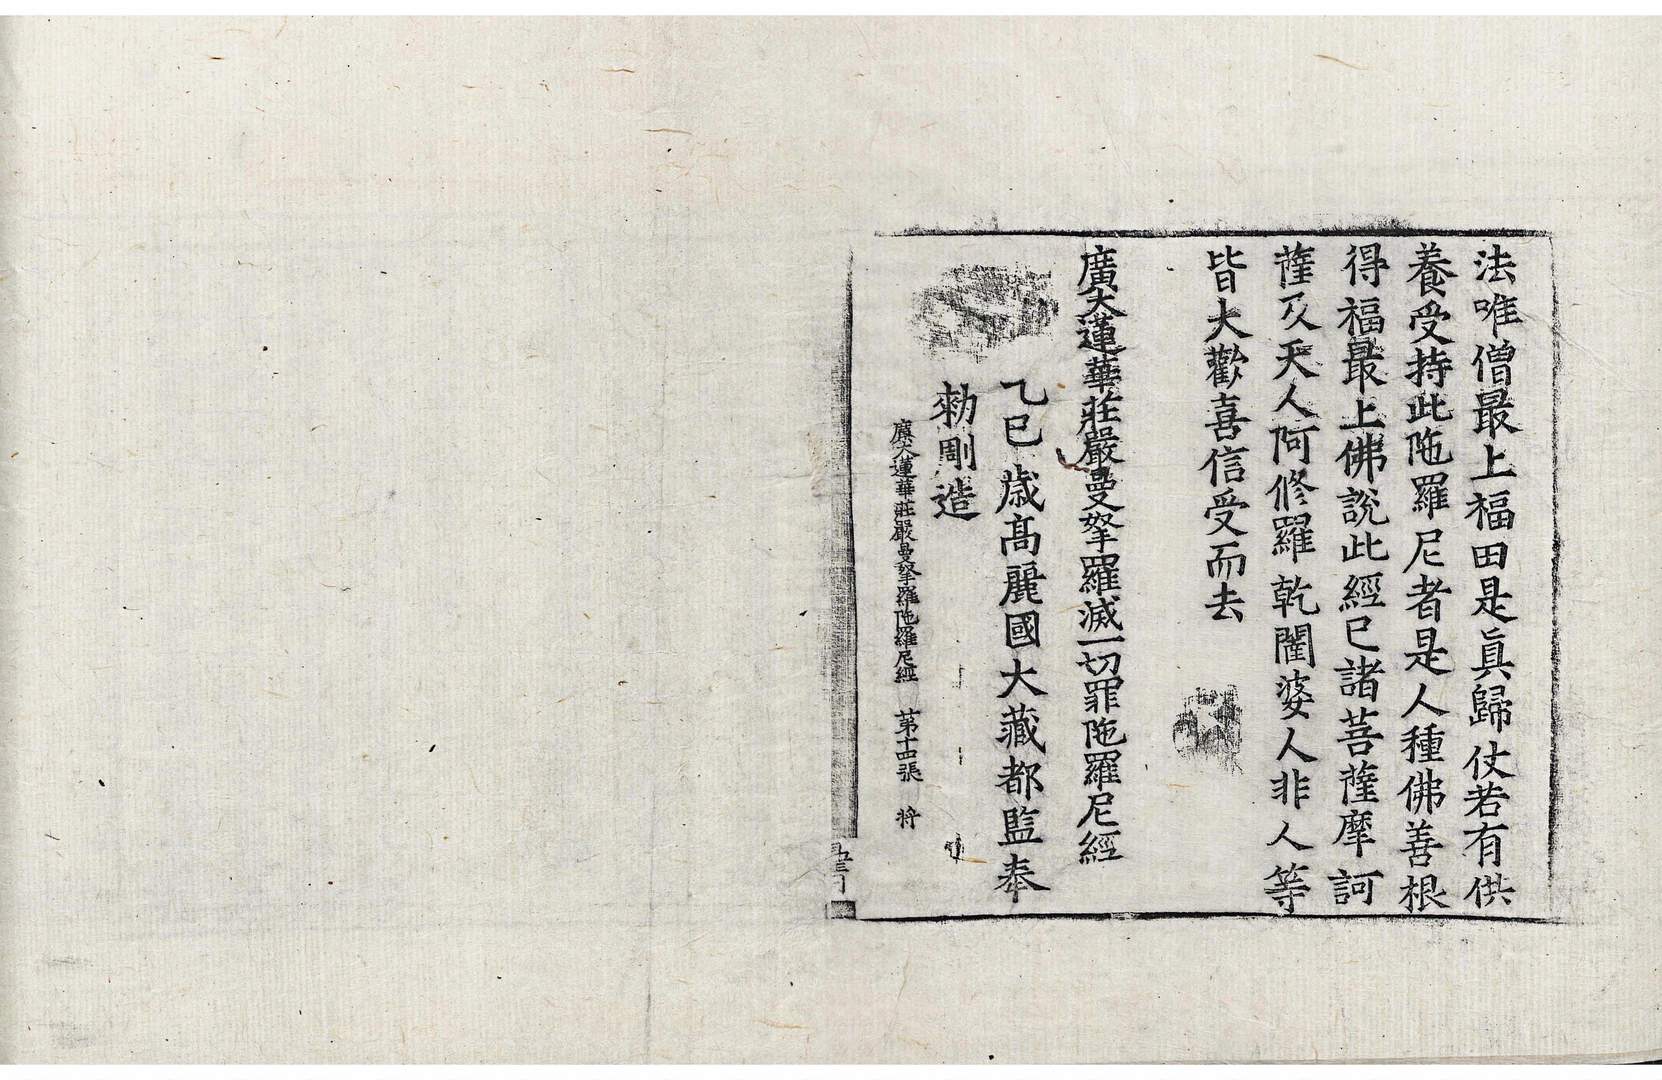 法唯僧最上福田是眞歸仗若有供
養受持此陁羅尼者是人種佛善根
得福最上佛說此經已諸菩薩摩訶
薩及天人阿修羅乾闥婆人非人等
皆大歡喜信受而去
廣大蓮華莊嚴曼拏羅滅一切罪陁羅尼經
乙巳歲高麗國大藏都監奉
勑彫造
廣大蓮華莊嚴曼拏羅陁羅尼經 苐十四張 將